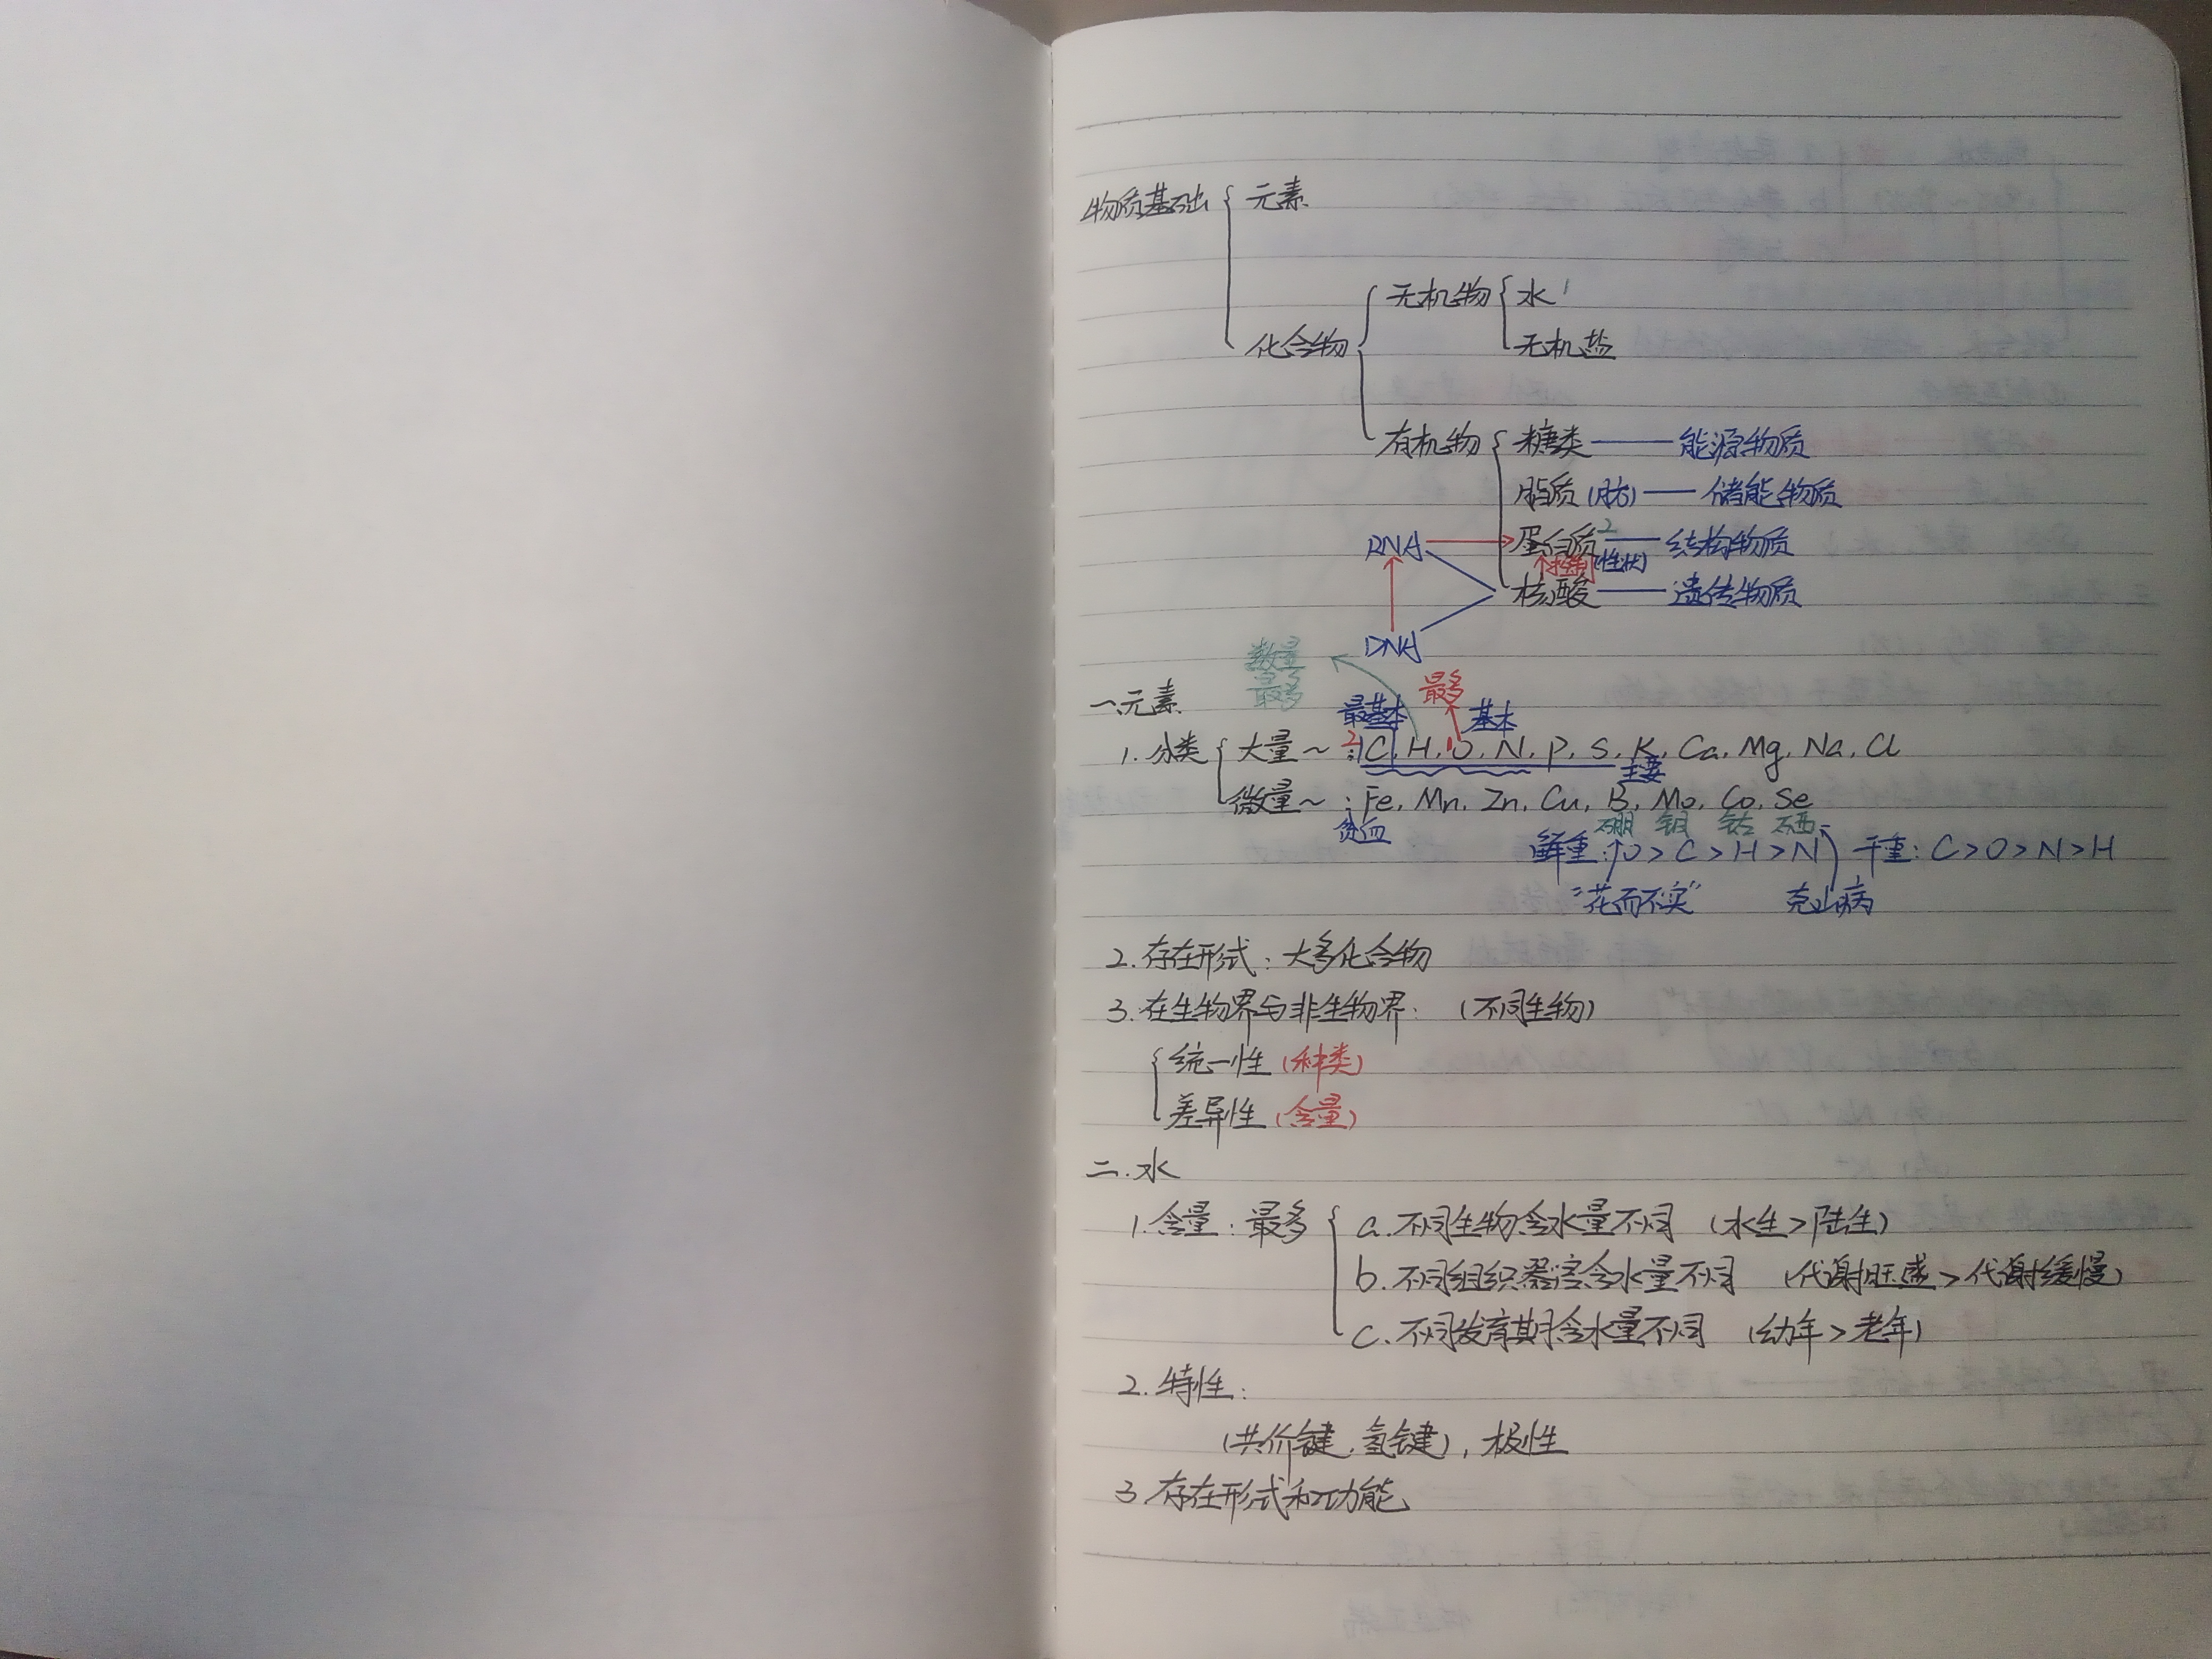 物质基础 { 元素
无机物 { 水 1
化合物 { 无机盐
有机物 { 糖类 —— 能源物质
脂质(肪) —— 储能物质
RNA → 蛋白质 2 —— 结构物质
↑控制 (性状)
核酸 —— 遗传物质
DNA
数量
最多
最多
一.元素
最基本 基本
1. 分类 { 大量~ : C, H, O, N, P, S, K, Ca, Mg, Na, Cl
主要
微量~ : Fe, Mn, Zn, Cu, B, Mo, Co, Se
贫血 硼 钼 钴 硒
鲜重: O > C > H > N 干重: C > O > N > H
“花而不实” 克山病
2. 存在形式: 大多化合物
3. 在生物界与非生物界: (不同生物)
{ 统一性 (种类)
差异性 (含量)
二. 水
1. 含量: 最多 { a. 不同生物含水量不同 (水生 > 陆生)
b. 不同组织器官含水量不同 (代谢旺盛 > 代谢缓慢)
c. 不同发育期含水量不同 (幼年 > 老年)
2. 特性:
(共价键, 氢键), 极性
3. 存在形式和功能